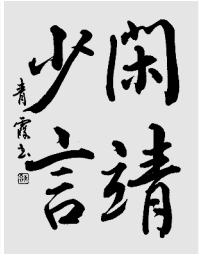 閑靖
少言
青霞书